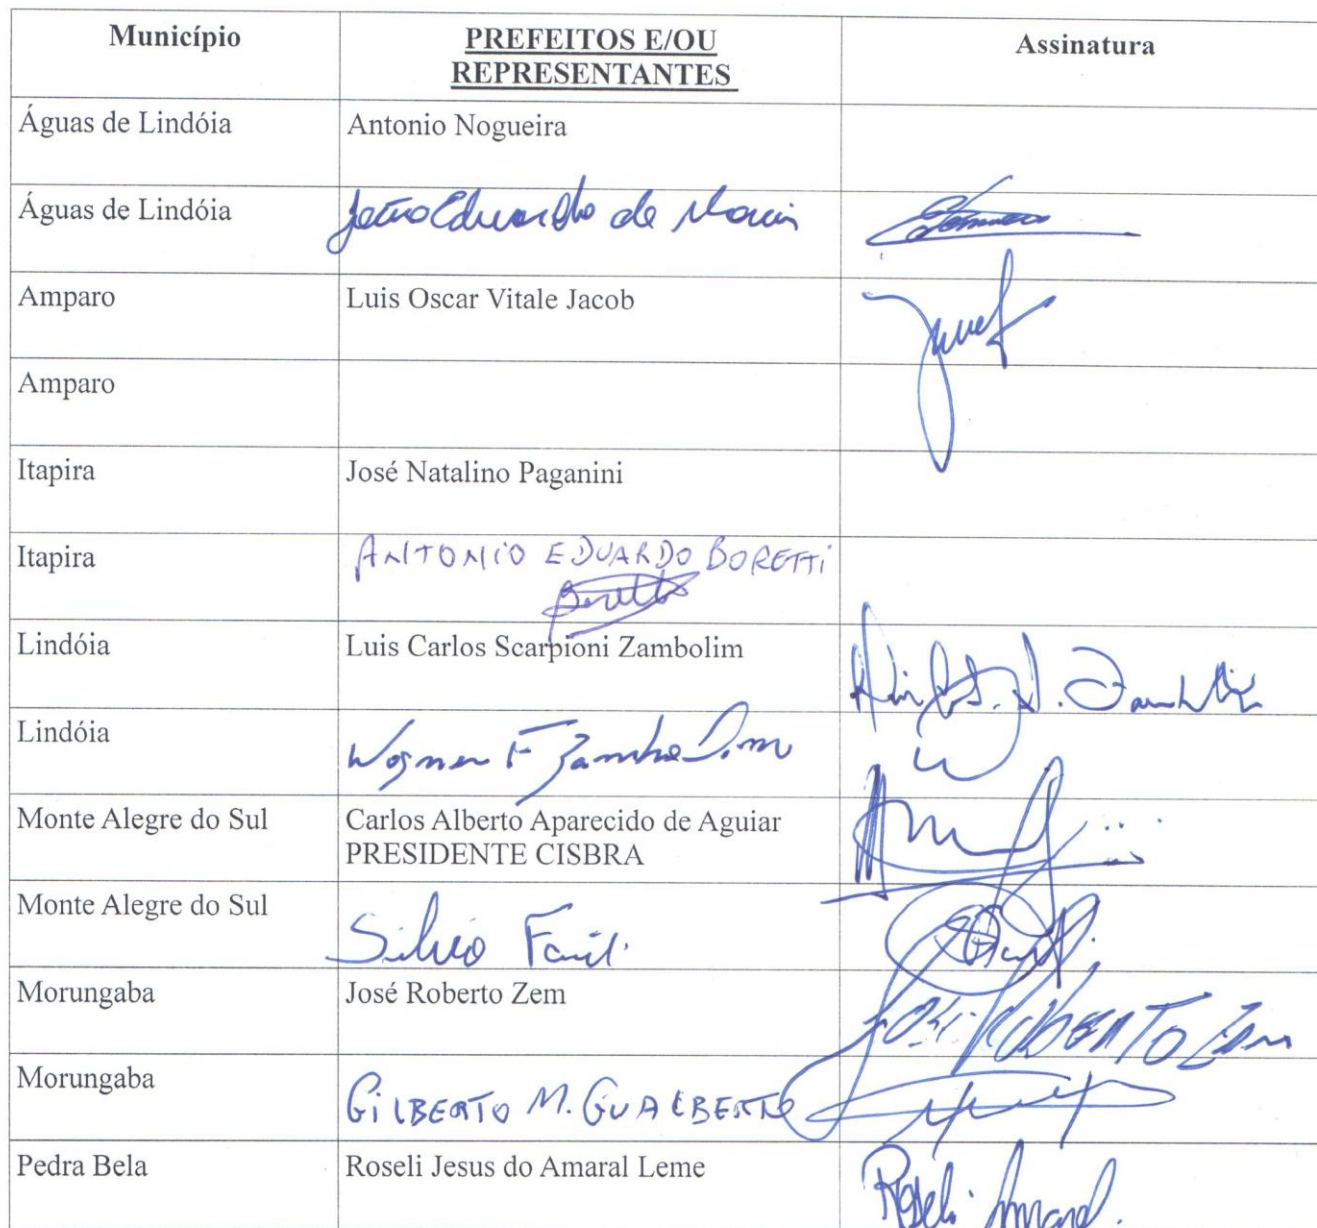 Município PREFEITOS E/OU Assinatura
REPRESENTANTES
Águas de Lindóia Antonio Nogueira
Águas de Lindóia João Eduardo de
Amparo Luis Oscar Vitale Jacob
Amparo
Itapira José Natalino Paganini
Itapira ANTONIO EDUARDO BORETTI
Lindóia Luis Carlos Scarpioni Zambolim
Lindóia Wagner F
Monte Alegre do Sul Carlos Alberto Aparecido de Aguiar
PRESIDENTE CISBRA
Monte Alegre do Sul Silvio
Morungaba José Roberto Zem JOSÉ ROBERTO Zem
Morungaba GILBERTO M. GUALBERTO
Pedra Bela Roseli Jesus do Amaral Leme Roseli Amaral.